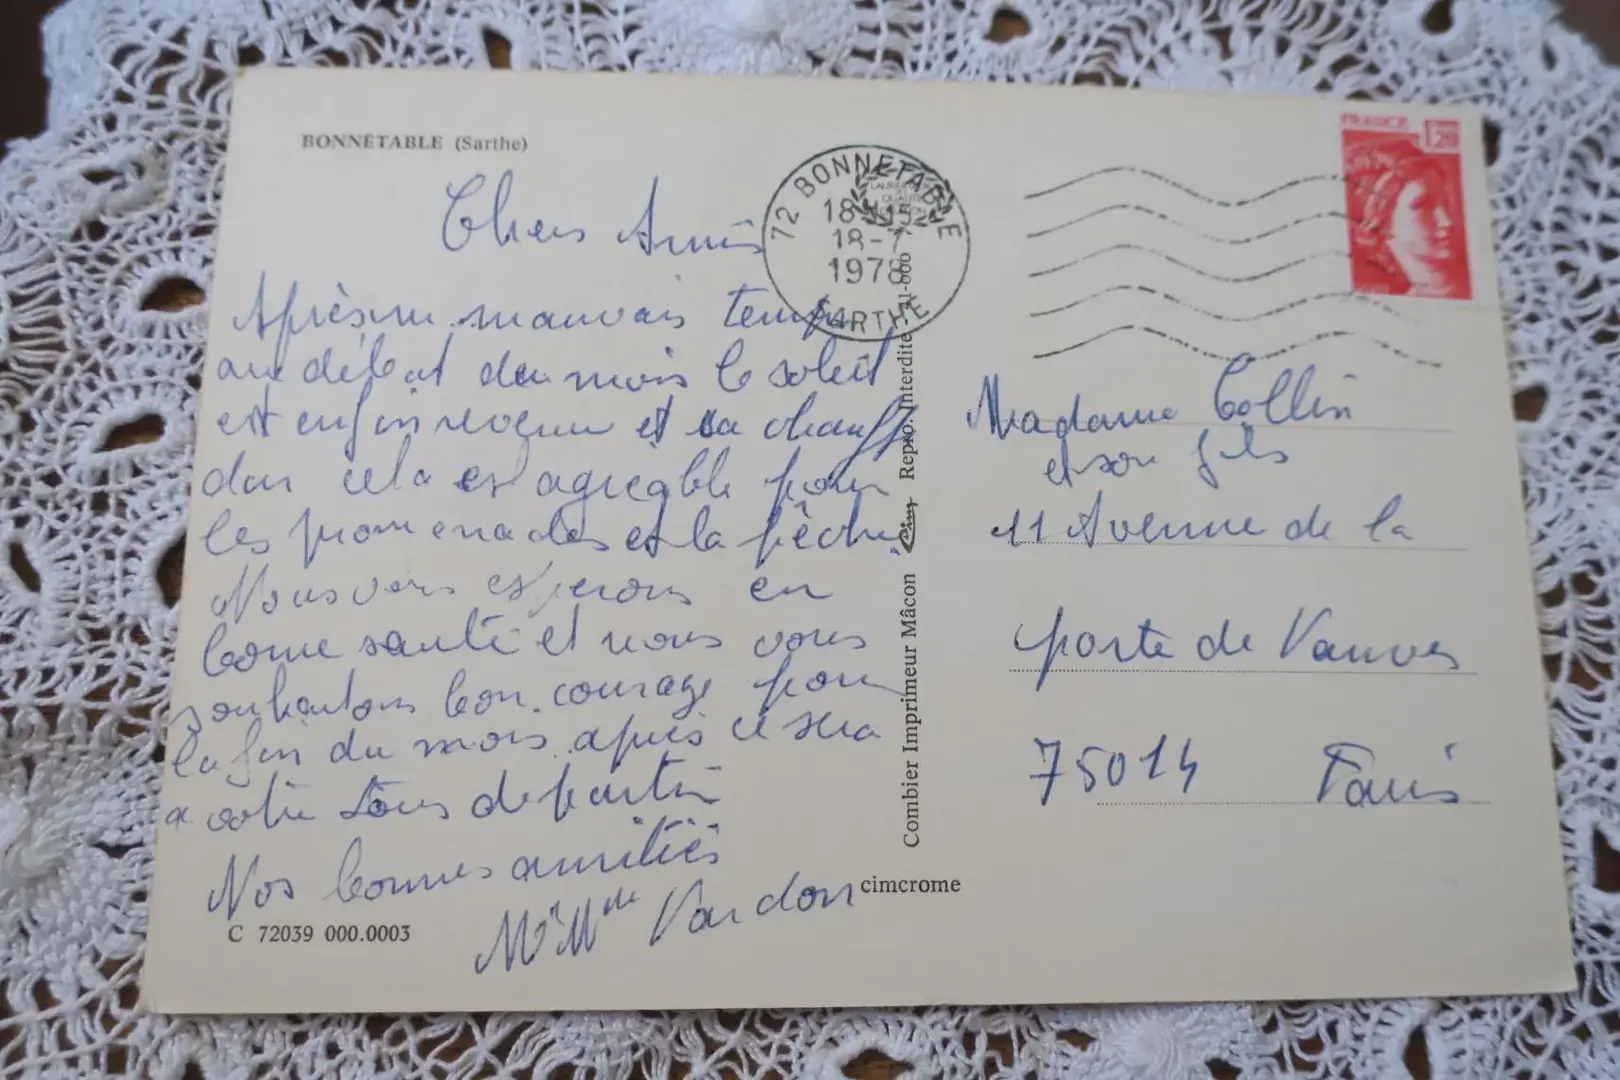 BONNÉTABLE (Sarthe)
Chers Amis
Après un mauvais temps
au début du mois le soleil
est enfin revenu et sa chauffe
dans cela est agréable pour
les promenades et la pêche.
Nous vous espérons en
bonne santé et nous vous
souhaitons bon courage pour
la fin du mois après ce sera
a votre tour de partir
Nos bonnes amitiés
Mr Mme Vardon
C 72039 000.0003
72 BONNETABLE
18H15
18-7
1978
SARTHE
Combier Imprimeur Mâcon Cim Repro. Interdite
cimcrome
FRANCE 1,20
Madame Collin
et son fils
11 Avenue de la
porte de Vanves
75014 Paris